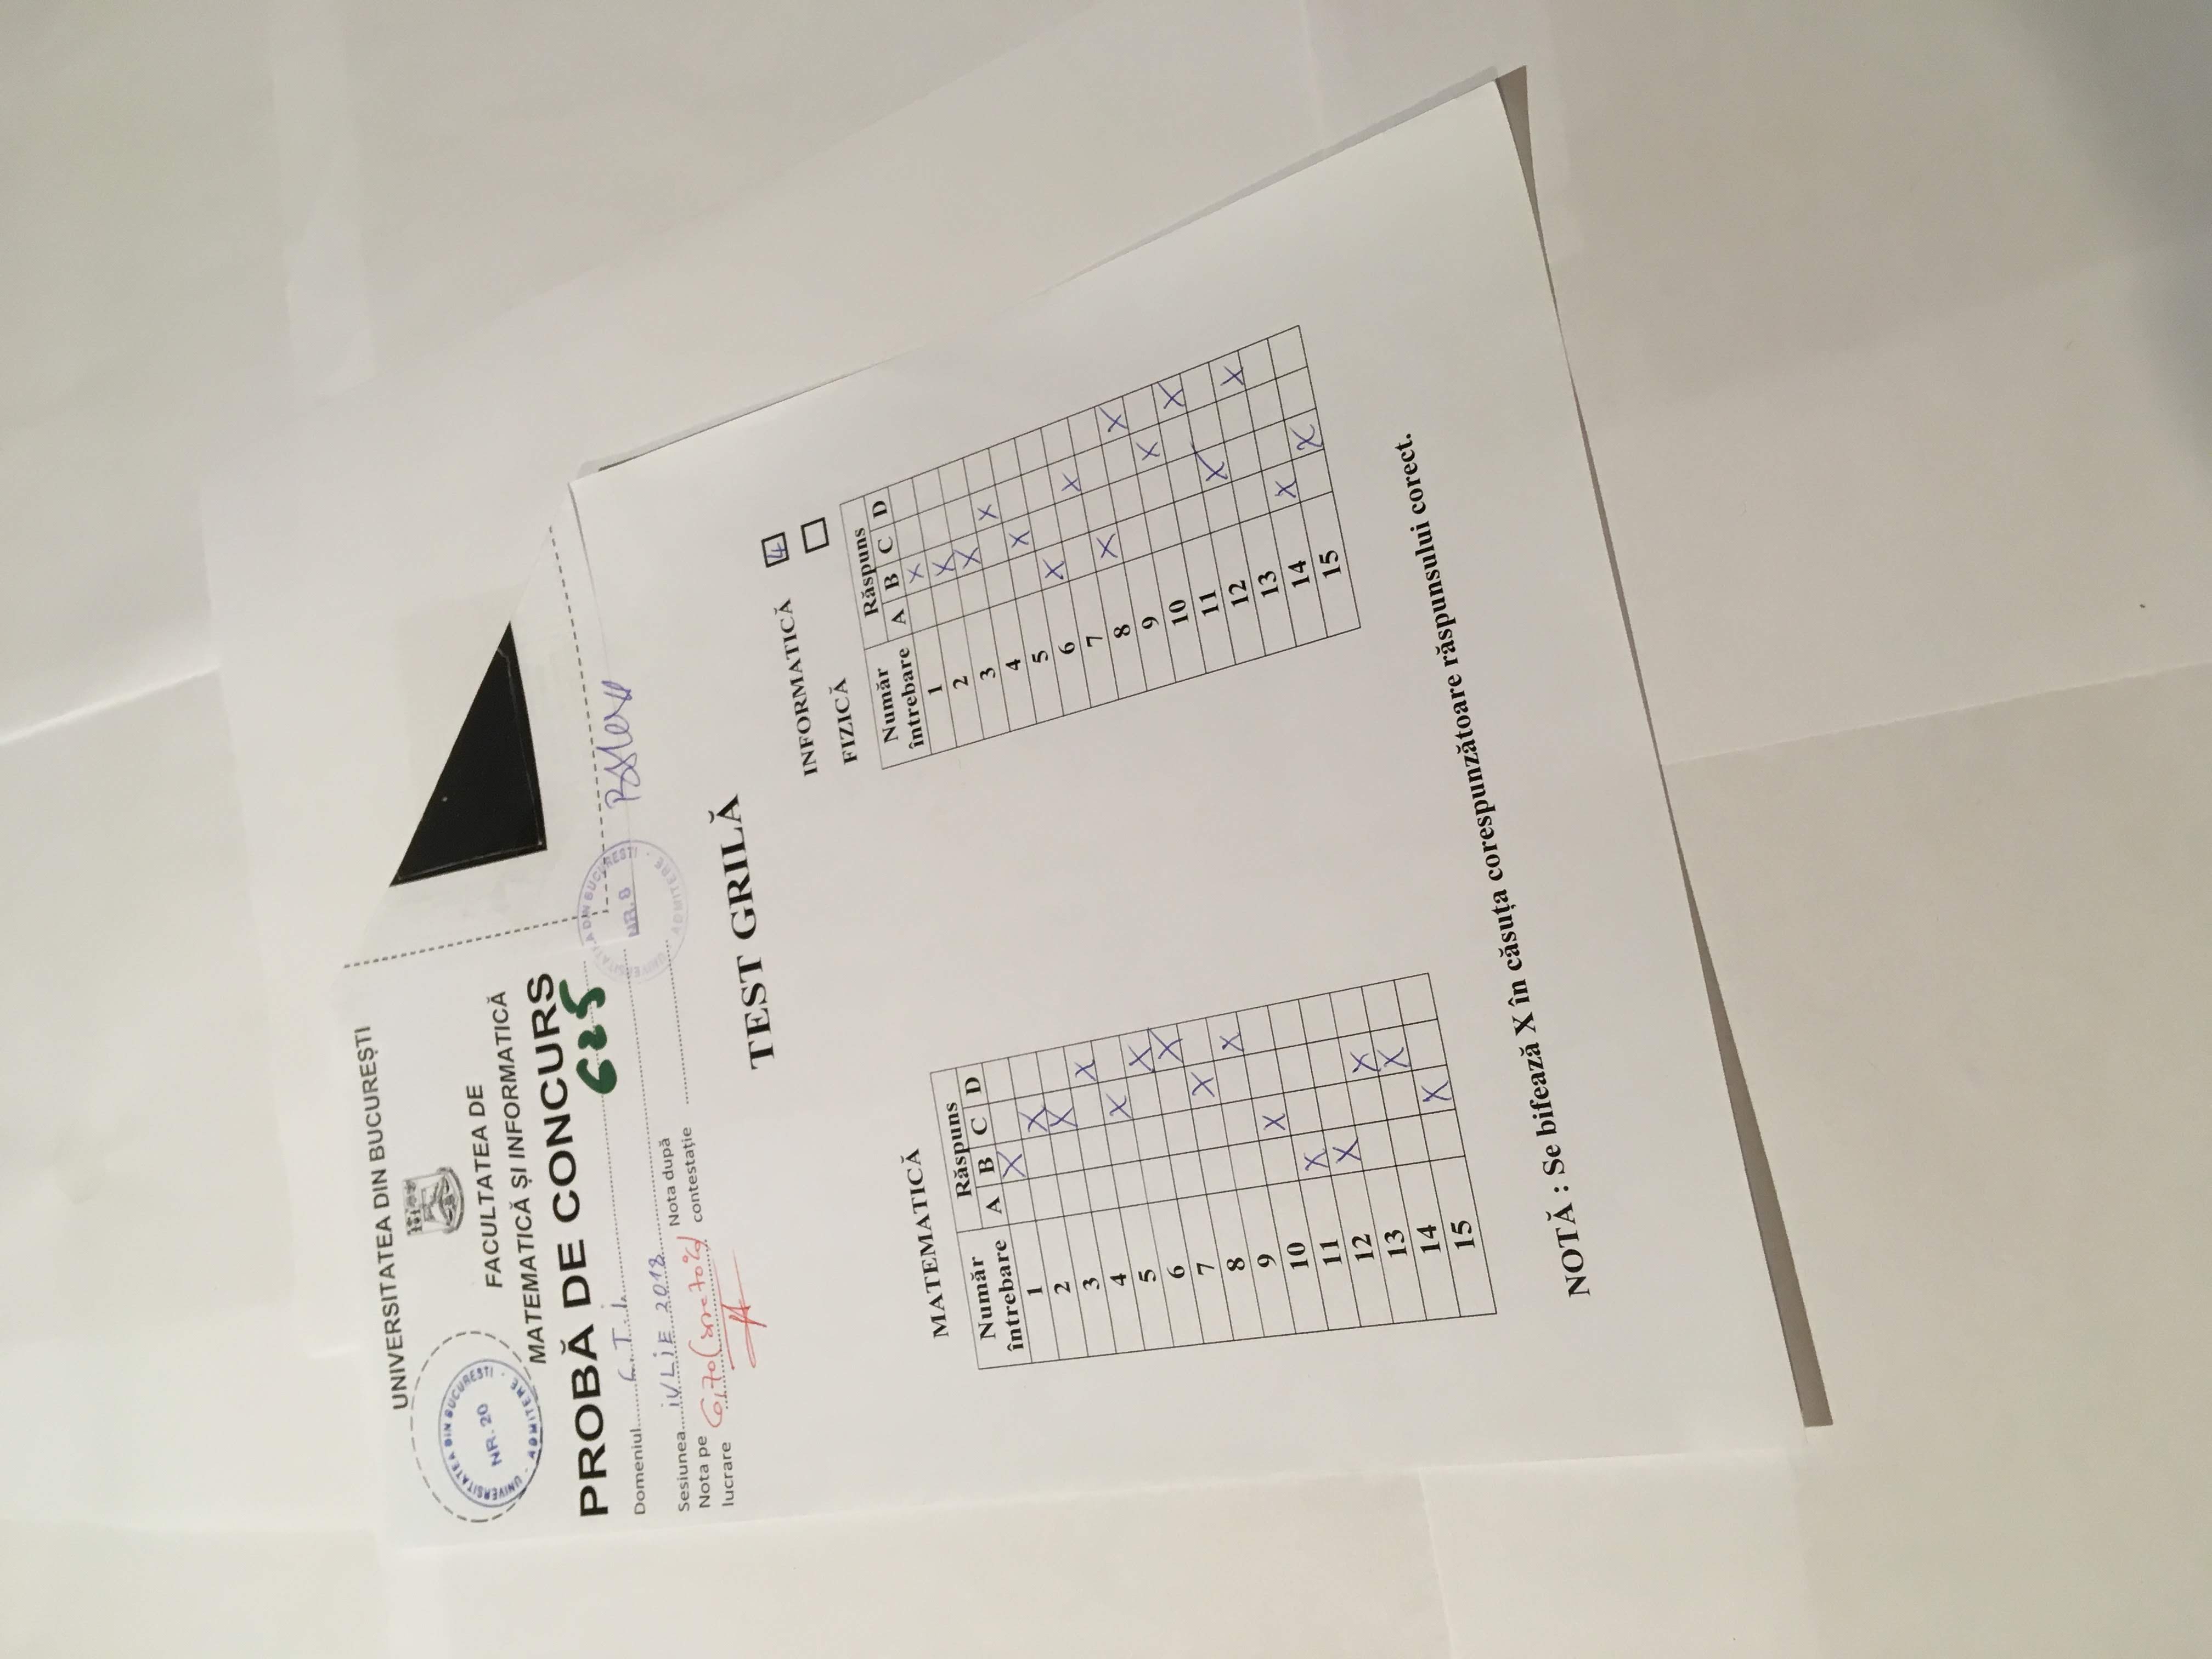 UNIVERSITATEA DIN BUCUREȘTI
UNIVERSITATEA DIN BUCUREȘTI
NR. 20
ADMITERE
FACULTATEA DE
MATEMATICĂ ȘI INFORMATICĂ
PROBĂ DE CONCURS
625
Domeniul C.T.I.
Sesiunea IULIE 2018
Nota pe lucrare 6,70
Nota după contestație
UNIVERSITATEA DIN BUCUREȘTI
NR. 8
ADMITERE
TEST GRILĂ
MATEMATICĂ
Număr întrebare Răspuns
A B C D
1 X
2 X
3 X
4 X
5 X
6 X
7 X
8 X
9 X
10 X
11 X
12 X
13 X
14 X
15 X
INFORMATICĂ
FIZICĂ
Număr întrebare Răspuns
A B C D
1 X
2 X
3 X
4 X
5 X
6 X
7 X
8 X
9 X
10 X
11 X
12 X
13 X
14 X
15 X
NOTĂ : Se bifează X în căsuța corespunzătoare răspunsului corect.